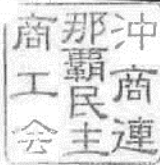 沖商連
那覇民主
商工会